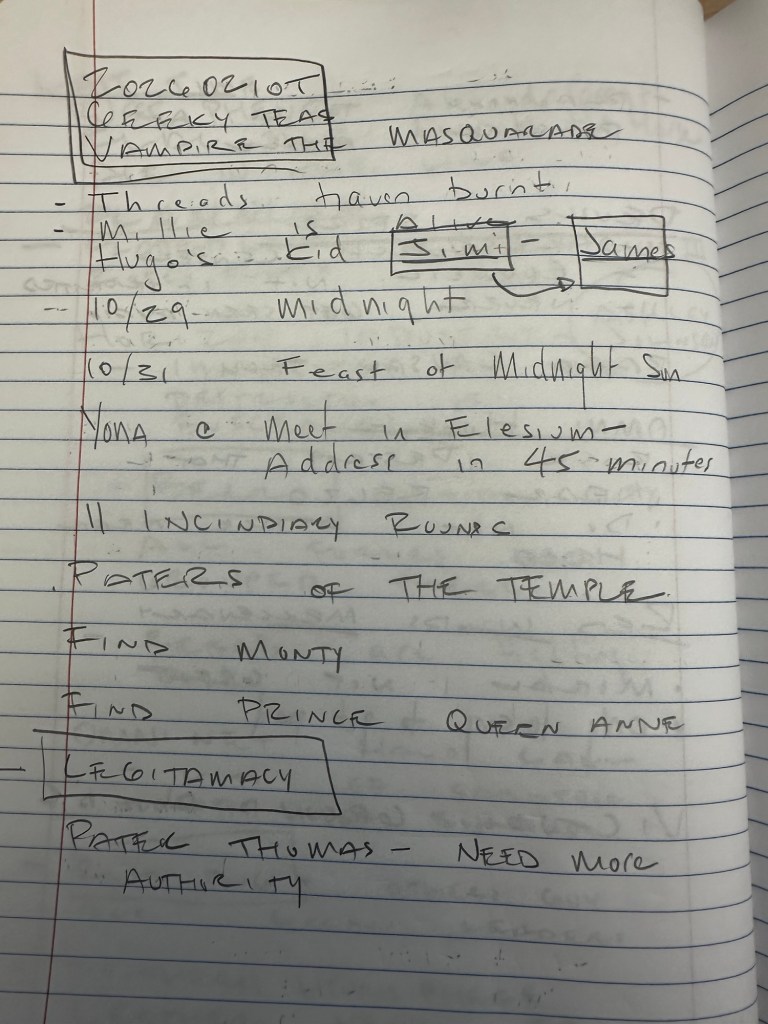 20260210T
GEEKY TEAS
VAMPIRE THE MASQUARADE
- Threads haven burnt.
- Millie is Alive
Hugo's kid Jimi - James
-- 10/29 midnight
10/31 Feast of Midnight Sun
YONA @ Meet in Elesium -
Address in 45-minutes
11 INCINDIARY ROUNDS
PATERS OF THE TEMPLE
FIND MONTY
FIND PRINCE QUEEN ANNE
- LEGITAMACY
PATER THOMAS - NEED More
AUTHORITY